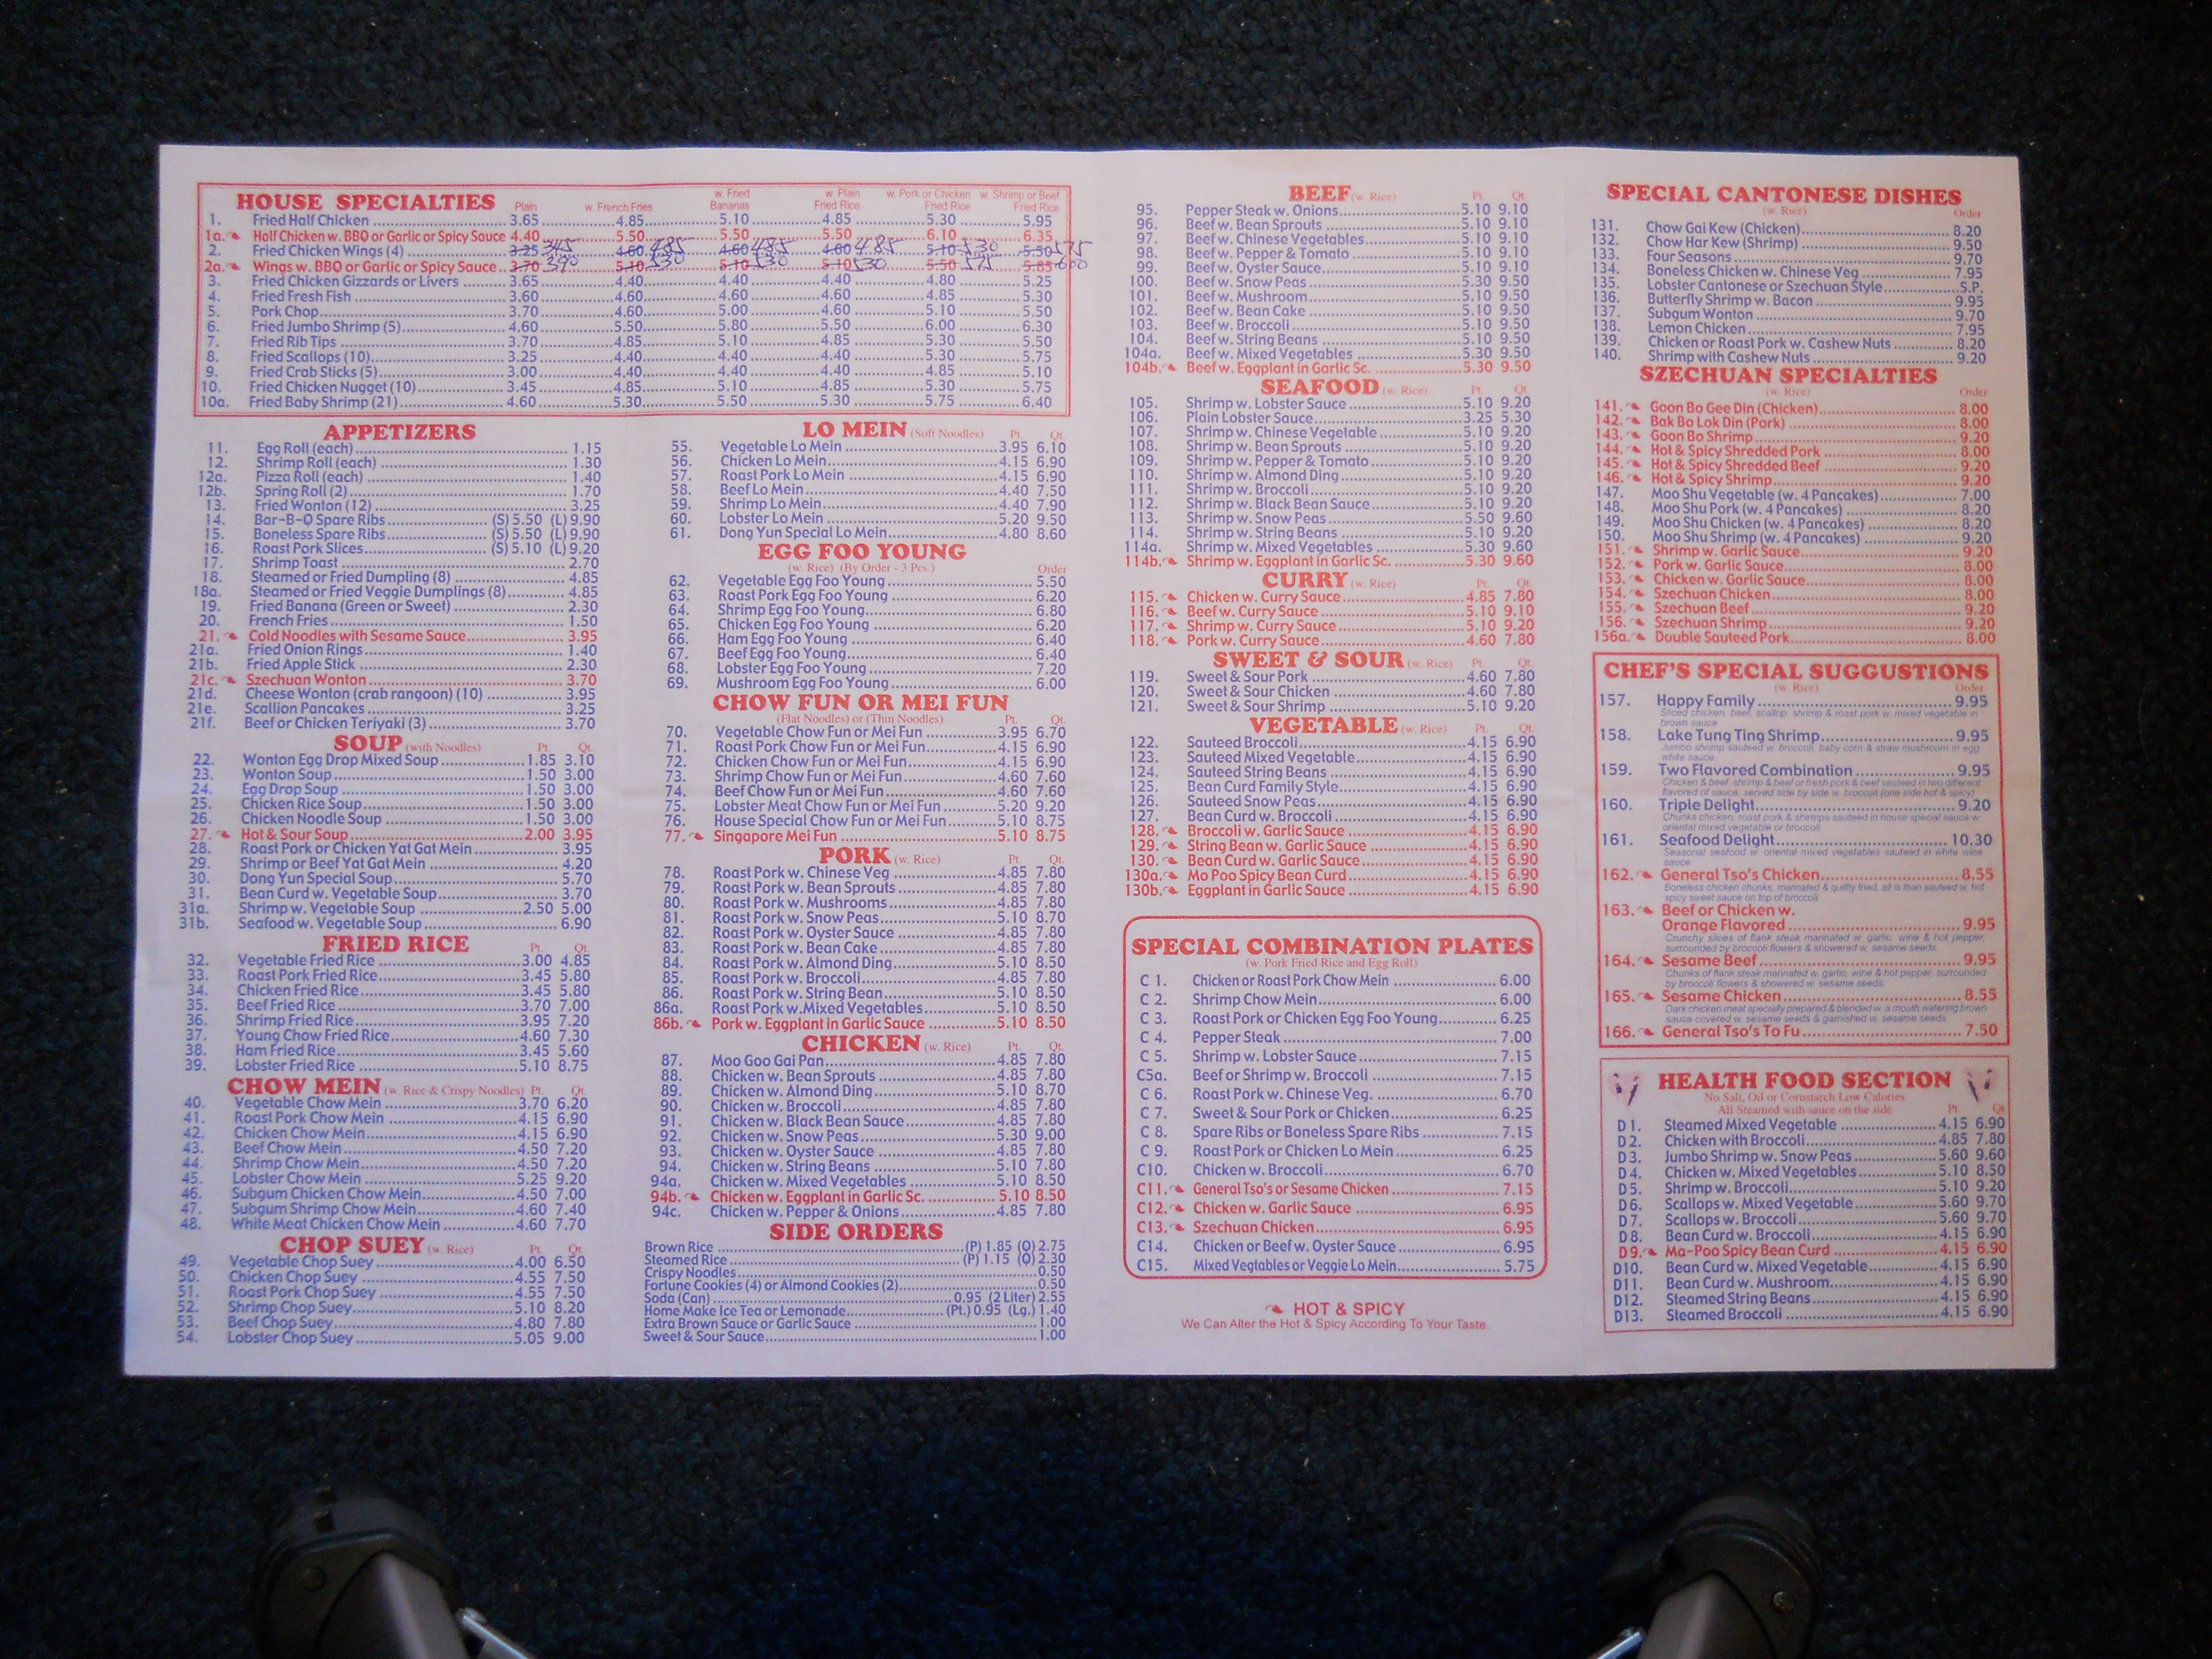 HOUSE SPECIALTIES Plain w. French Fries w. Fried Bananas w. Plain Fried Rice w. Pork or Chicken Fried Rice w. Shrimp or Beef Fried Rice
1. Fried Half Chicken 3.65 4.85 5.10 4.85 5.30 5.95
1a. Half Chicken w. BBQ or Garlic or Spicy Sauce 4.40 5.50 5.50 5.50 6.10 6.35
2. Fried Chicken Wings (4) 3.25 345 4.60 485 4.60 485 4.60 4.85 5.10 530 5.50 575
2a. Wings w. BBQ or Garlic or Spicy Sauce 3.70 390 5.10 530 5.10 530 5.10 530 5.50 575 5.85 600
3. Fried Chicken Gizzards or Livers 3.65 4.40 4.40 4.40 4.80 5.25
4. Fried Fresh Fish 3.60 4.60 4.60 4.60 4.85 5.30
5. Pork Chop 3.70 4.60 5.00 4.60 5.10 5.50
6. Fried Jumbo Shrimp (5) 4.60 5.50 5.80 5.50 6.00 6.30
7. Fried Rib Tips 3.70 4.85 5.10 4.85 5.30 5.50
8. Fried Scallops (10) 3.25 4.40 4.40 4.40 5.30 5.75
9. Fried Crab Sticks (5) 3.00 4.40 4.40 4.40 4.85 5.10
10. Fried Chicken Nugget (10) 3.45 4.85 5.10 4.85 5.30 5.75
10a. Fried Baby Shrimp (21) 4.60 5.30 5.50 5.30 5.75 6.40
APPETIZERS
11. Egg Roll (each) 1.15
12. Shrimp Roll (each) 1.30
12a. Pizza Roll (each) 1.40
12b. Spring Roll (2) 1.70
13. Fried Wonton (12) 3.25
14. Bar-B-Q Spare Ribs (S) 5.50 (L) 9.90
15. Boneless Spare Ribs (S) 5.50 (L) 9.90
16. Roast Pork Slices (S) 5.10 (L) 9.20
17. Shrimp Toast 2.70
18. Steamed or Fried Dumpling (8) 4.85
18a. Steamed or Fried Veggie Dumplings (8) 4.85
19. Fried Banana (Green or Sweet) 2.30
20. French Fries 1.50
21. Cold Noodles with Sesame Sauce 3.95
21a. Fried Onion Rings 1.40
21b. Fried Apple Stick 2.30
21c. Szechuan Wonton 3.70
21d. Cheese Wonton (crab rangoon) (10) 3.95
21e. Scallion Pancakes 3.25
21f. Beef or Chicken Teriyaki (3) 3.70
SOUP (with Noodles) Pt. Qt.
22. Wonton Egg Drop Mixed Soup 1.85 3.10
23. Wonton Soup 1.50 3.00
24. Egg Drop Soup 1.50 3.00
25. Chicken Rice Soup 1.50 3.00
26. Chicken Noodle Soup 1.50 3.00
27. Hot & Sour Soup 2.00 3.95
28. Roast Pork or Chicken Yat Gat Mein 3.95
29. Shrimp or Beef Yat Gat Mein 4.20
30. Dong Yun Special Soup 5.70
31. Bean Curd w. Vegetable Soup 3.70
31a. Shrimp w. Vegetable Soup 2.50 5.00
31b. Seafood w. Vegetable Soup 6.90
FRIED RICE Pt. Qt.
32. Vegetable Fried Rice 3.00 4.85
33. Roast Pork Fried Rice 3.45 5.80
34. Chicken Fried Rice 3.45 5.80
35. Beef Fried Rice 3.70 7.00
36. Shrimp Fried Rice 3.95 7.20
37. Young Chow Fried Rice 4.60 7.30
38. Ham Fried Rice 3.45 5.60
39. Lobster Fried Rice 5.10 8.75
CHOW MEIN (w. Rice & Crispy Noodles) Pt. Qt.
40. Vegetable Chow Mein 3.70 6.20
41. Roast Pork Chow Mein 4.15 6.90
42. Chicken Chow Mein 4.15 6.90
43. Beef Chow Mein 4.50 7.20
44. Shrimp Chow Mein 4.50 7.20
45. Lobster Chow Mein 5.25 9.20
46. Subgum Chicken Chow Mein 4.50 7.00
47. Subgum Shrimp Chow Mein 4.60 7.40
48. White Meat Chicken Chow Mein 4.60 7.70
CHOP SUEY (w. Rice) Pt. Qt.
49. Vegetable Chop Suey 4.00 6.50
50. Chicken Chop Suey 4.55 7.50
51. Roast Pork Chop Suey 4.55 7.50
52. Shrimp Chop Suey 5.10 8.20
53. Beef Chop Suey 4.80 7.80
54. Lobster Chop Suey 5.05 9.00
LO MEIN (Soft Noodles) Pt. Qt.
55. Vegetable Lo Mein 3.95 6.10
56. Chicken Lo Mein 4.15 6.90
57. Roast Pork Lo Mein 4.15 6.90
58. Beef Lo Mein 4.40 7.50
59. Shrimp Lo Mein 4.40 7.90
60. Lobster Lo Mein 5.20 9.50
61. Dong Yun Special Lo Mein 4.80 8.60
EGG FOO YOUNG
(w. Rice) (By Order - 3 Pcs.) Order
62. Vegetable Egg Foo Young 5.50
63. Roast Pork Egg Foo Young 6.20
64. Shrimp Egg Foo Young 6.80
65. Chicken Egg Foo Young 6.20
66. Ham Egg Foo Young 6.40
67. Beef Egg Foo Young 6.40
68. Lobster Egg Foo Young 7.20
69. Mushroom Egg Foo Young 6.00
CHOW FUN OR MEI FUN
(Flat Noodles) or (Thin Noodles) Pt. Qt.
70. Vegetable Chow Fun or Mei Fun 3.95 6.70
71. Roast Pork Chow Fun or Mei Fun 4.15 6.90
72. Chicken Chow Fun or Mei Fun 4.15 6.90
73. Shrimp Chow Fun or Mei Fun 4.60 7.60
74. Beef Chow Fun or Mei Fun 4.60 7.60
75. Lobster Meat Chow Fun or Mei Fun 5.20 9.20
76. House Special Chow Fun or Mei Fun 5.10 8.75
77. Singapore Mei Fun 5.10 8.75
PORK (w. Rice) Pt. Qt.
78. Roast Pork w. Chinese Veg 4.85 7.80
79. Roast Pork w. Bean Sprouts 4.85 7.80
80. Roast Pork w. Mushrooms 4.85 7.80
81. Roast Pork w. Snow Peas 5.10 8.70
82. Roast Pork w. Oyster Sauce 4.85 7.80
83. Roast Pork w. Bean Cake 4.85 7.80
84. Roast Pork w. Almond Ding 5.10 8.50
85. Roast Pork w. Broccoli 4.85 7.80
86. Roast Pork w. String Bean 5.10 8.50
86a. Roast Pork w. Mixed Vegetables 5.10 8.50
86b. Pork w. Eggplant in Garlic Sauce 5.10 8.50
CHICKEN (w. Rice) Pt. Qt.
87. Moo Goo Gai Pan 4.85 7.80
88. Chicken w. Bean Sprouts 4.85 7.80
89. Chicken w. Almond Ding 5.10 8.70
90. Chicken w. Broccoli 4.85 7.80
91. Chicken w. Black Bean Sauce 4.85 7.80
92. Chicken w. Snow Peas 5.30 9.00
93. Chicken w. Oyster Sauce 4.85 7.80
94. Chicken w. String Beans 5.10 7.80
94a. Chicken w. Mixed Vegetables 5.10 8.50
94b. Chicken w. Eggplant in Garlic Sc. 5.10 8.50
94c. Chicken w. Pepper & Onions 4.85 7.80
SIDE ORDERS
Brown Rice (P) 1.85 (Q) 2.75
Steamed Rice (P) 1.15 (Q) 2.30
Crispy Noodles 0.50
Fortune Cookies (4) or Almond Cookies (2) 0.50
Soda (Can) 0.95 (2 Liter) 2.55
Home Make Ice Tea or Lemonade (Pt.) 0.95 (Lg.) 1.40
Extra Brown Sauce or Garlic Sauce 1.00
Sweet & Sour Sauce 1.00
BEEF (w. Rice) Pt. Qt.
95. Pepper Steak w. Onions 5.10 9.10
96. Beef w. Bean Sprouts 5.10 9.10
97. Beef w. Chinese Vegetables 5.10 9.10
98. Beef w. Pepper & Tomato 5.10 9.10
99. Beef w. Oyster Sauce 5.10 9.10
100. Beef w. Snow Peas 5.30 9.50
101. Beef w. Mushroom 5.10 9.50
102. Beef w. Bean Cake 5.10 9.50
103. Beef w. Broccoli 5.10 9.50
104. Beef w. String Beans 5.10 9.50
104a. Beef w. Mixed Vegetables 5.30 9.50
104b. Beef w. Eggplant in Garlic Sc. 5.30 9.50
SEAFOOD (w. Rice) Pt. Qt.
105. Shrimp w. Lobster Sauce 5.10 9.20
106. Plain Lobster Sauce 3.25 5.30
107. Shrimp w. Chinese Vegetable 5.10 9.20
108. Shrimp w. Bean Sprouts 5.10 9.20
109. Shrimp w. Pepper & Tomato 5.10 9.20
110. Shrimp w. Almond Ding 5.10 9.20
111. Shrimp w. Broccoli 5.10 9.20
112. Shrimp w. Black Bean Sauce 5.10 9.20
113. Shrimp w. Snow Peas 5.50 9.60
114. Shrimp w. String Beans 5.10 9.20
114a. Shrimp w. Mixed Vegetables 5.30 9.60
114b. Shrimp w. Eggplant in Garlic Sc. 5.30 9.60
CURRY (w. Rice) Pt. Qt.
115. Chicken w. Curry Sauce 4.85 7.80
116. Beef w. Curry Sauce 5.10 9.10
117. Shrimp w. Curry Sauce 5.10 9.20
118. Pork w. Curry Sauce 4.60 7.80
SWEET & SOUR (w. Rice) Pt. Qt.
119. Sweet & Sour Pork 4.60 7.80
120. Sweet & Sour Chicken 4.60 7.80
121. Sweet & Sour Shrimp 5.10 9.20
VEGETABLE (w. Rice) Pt. Qt.
122. Sauteed Broccoli 4.15 6.90
123. Sauteed Mixed Vegetable 4.15 6.90
124. Sauteed String Beans 4.15 6.90
125. Bean Curd Family Style 4.15 6.90
126. Sauteed Snow Peas 4.15 6.90
127. Bean Curd w. Broccoli 4.15 6.90
128. Broccoli w. Garlic Sauce 4.15 6.90
129. String Bean w. Garlic Sauce 4.15 6.90
130. Bean Curd w. Garlic Sauce 4.15 6.90
130a. Mo Poo Spicy Bean Curd 4.15 6.90
130b. Eggplant in Garlic Sauce 4.15 6.90
SPECIAL COMBINATION PLATES
(w. Pork Fried Rice and Egg Roll)
C 1. Chicken or Roast Pork Chow Mein 6.00
C 2. Shrimp Chow Mein 6.00
C 3. Roast Pork or Chicken Egg Foo Young 6.25
C 4. Pepper Steak 7.00
C 5. Shrimp w. Lobster Sauce 7.15
C5a. Beef or Shrimp w. Broccoli 7.15
C 6. Roast Pork w. Chinese Veg. 6.70
C 7. Sweet & Sour Pork or Chicken 6.25
C 8. Spare Ribs or Boneless Spare Ribs 7.15
C 9. Roast Pork or Chicken Lo Mein 6.25
C10. Chicken w. Broccoli 6.70
C11. General Tso's or Sesame Chicken 7.15
C12. Chicken w. Garlic Sauce 6.95
C13. Szechuan Chicken 6.95
C14. Chicken or Beef w. Oyster Sauce 6.95
C15. Mixed Vegtables or Veggie Lo Mein 5.75
HOT & SPICY
We Can Alter the Hot & Spicy According To Your Taste.
SPECIAL CANTONESE DISHES
(w. Rice) Order
131. Chow Gai Kew (Chicken) 8.20
132. Chow Har Kew (Shrimp) 9.50
133. Four Seasons 9.70
134. Boneless Chicken w. Chinese Veg 7.95
135. Lobster Cantonese or Szechuan Style S.P.
136. Butterfly Shrimp w. Bacon 9.95
137. Subgum Wonton 9.70
138. Lemon Chicken 7.95
139. Chicken or Roast Pork w. Cashew Nuts 8.20
140. Shrimp with Cashew Nuts 9.20
SZECHUAN SPECIALTIES
(w. Rice) Order
141. Goon Bo Gee Din (Chicken) 8.00
142. Bak Bo Lok Din (Pork) 8.00
143. Goon Bo Shrimp 9.20
144. Hot & Spicy Shredded Pork 8.00
145. Hot & Spicy Shredded Beef 9.20
146. Hot & Spicy Shrimp 9.20
147. Moo Shu Vegetable (w. 4 Pancakes) 7.00
148. Moo Shu Pork (w. 4 Pancakes) 8.20
149. Moo Shu Chicken (w. 4 Pancakes) 8.20
150. Moo Shu Shrimp (w. 4 Pancakes) 9.20
151. Shrimp w. Garlic Sauce 9.20
152. Pork w. Garlic Sauce 8.00
153. Chicken w. Garlic Sauce 8.00
154. Szechuan Chicken 8.00
155. Szechuan Beef 9.20
156. Szechuan Shrimp 9.20
156a. Double Sauteed Pork 8.00
CHEF'S SPECIAL SUGGUSTIONS
(w. Rice) Order
157. Happy Family 9.95
Sliced chicken, beef, scallop, shrimp & roast pork w. mixed vegetable in
brown sauce.
158. Lake Tung Ting Shrimp 9.95
Jumbo shrimp sauteed w. broccoli, baby corn & straw mushroom in egg
white sauce.
159. Two Flavored Combination 9.95
Chicken & beef, shrimp & beef or fresh pork & beef sauteed in two different
flavored of sauce, served side by side w. broccoli (one side hot & spicy)
160. Triple Delight 9.20
Chunks chicken, roast pork & shrimps sauteed in house special sauce w.
oriental mixed vegetable or broccoli
161. Seafood Delight 10.30
Seasonal seafood w. oriental mixed vegetables sauteed in white wine
sauce
162. General Tso's Chicken 8.55
Boneless chicken chunks, marinated & quiltly fried, all is than sauteed w. hot
spicy sweet sauce on top of broccoli
163. Beef or Chicken w.
Orange Flavored 9.95
Crunchy slices of flank steak marinated w. garlic, wine & hot pepper,
surrounded by broccoli flowers & showered w. sesame seeds.
164. Sesame Beef 9.95
Chunks of flank steak marinated w. garlic, wine & hot pepper, surrounded
by broccoli flowers & showered w. sesame seeds.
165. Sesame Chicken 8.55
Dark chicken meat specially prepared & blended w. a mouth watering brown
sauce covered w. sesame seeds & garnished w. sesame seeds.
166. General Tso's To Fu 7.50
HEALTH FOOD SECTION
No Salt, Oil or Cornstarch Low Calories
All Steamed with sauce on the side Pt. Qt
D 1. Steamed Mixed Vegetable 4.15 6.90
D 2. Chicken with Broccoli 4.85 7.80
D 3. Jumbo Shrimp w. Snow Peas 5.60 9.60
D 4. Chicken w. Mixed Vegetables 5.10 8.50
D 5. Shrimp w. Broccoli 5.10 9.20
D 6. Scallops w. Mixed Vegetable 5.60 9.70
D 7. Scallops w. Broccoli 5.60 9.70
D 8. Bean Curd w. Broccoli 4.15 6.90
D 9. Ma-Poo Spicy Bean Curd 4.15 6.90
D10. Bean Curd w. Mixed Vegetable 4.15 6.90
D11. Bean Curd w. Mushroom 4.15 6.90
D12. Steamed String Beans 4.15 6.90
D13. Steamed Broccoli 4.15 6.90